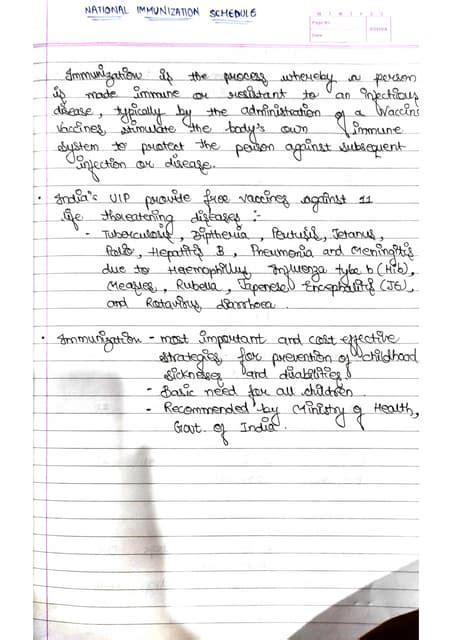 NATIONAL IMMUNIZATION SCHEDULE
Page No.
Date
Immunization is the process whereby a person
is made immune or resistant to an infectious
disease, typically by the administration of a vaccine
vaccines, stimulate the body's own immune
system to protect the person against subsequent
infection or disease.
• India's UIP provide free vaccines against 11
life threatening diseases :-
- Tuberculosis, Diptheria, Pertusis, Tetanus,
Polio, Hepatitis B, Pneumonia and Meningitis
due to Haemophillus Influenza type b (Hib),
Measles, Rubella, Japenese Encephalitis (JE),
and Rotavirus diarrhoea.
• Immunization - most important and cost effective
strategies for prevention of childhood
sicknesses and disabilities
- Basic need for all children.
- Recommended by Ministry of Health,
Govt. of India.